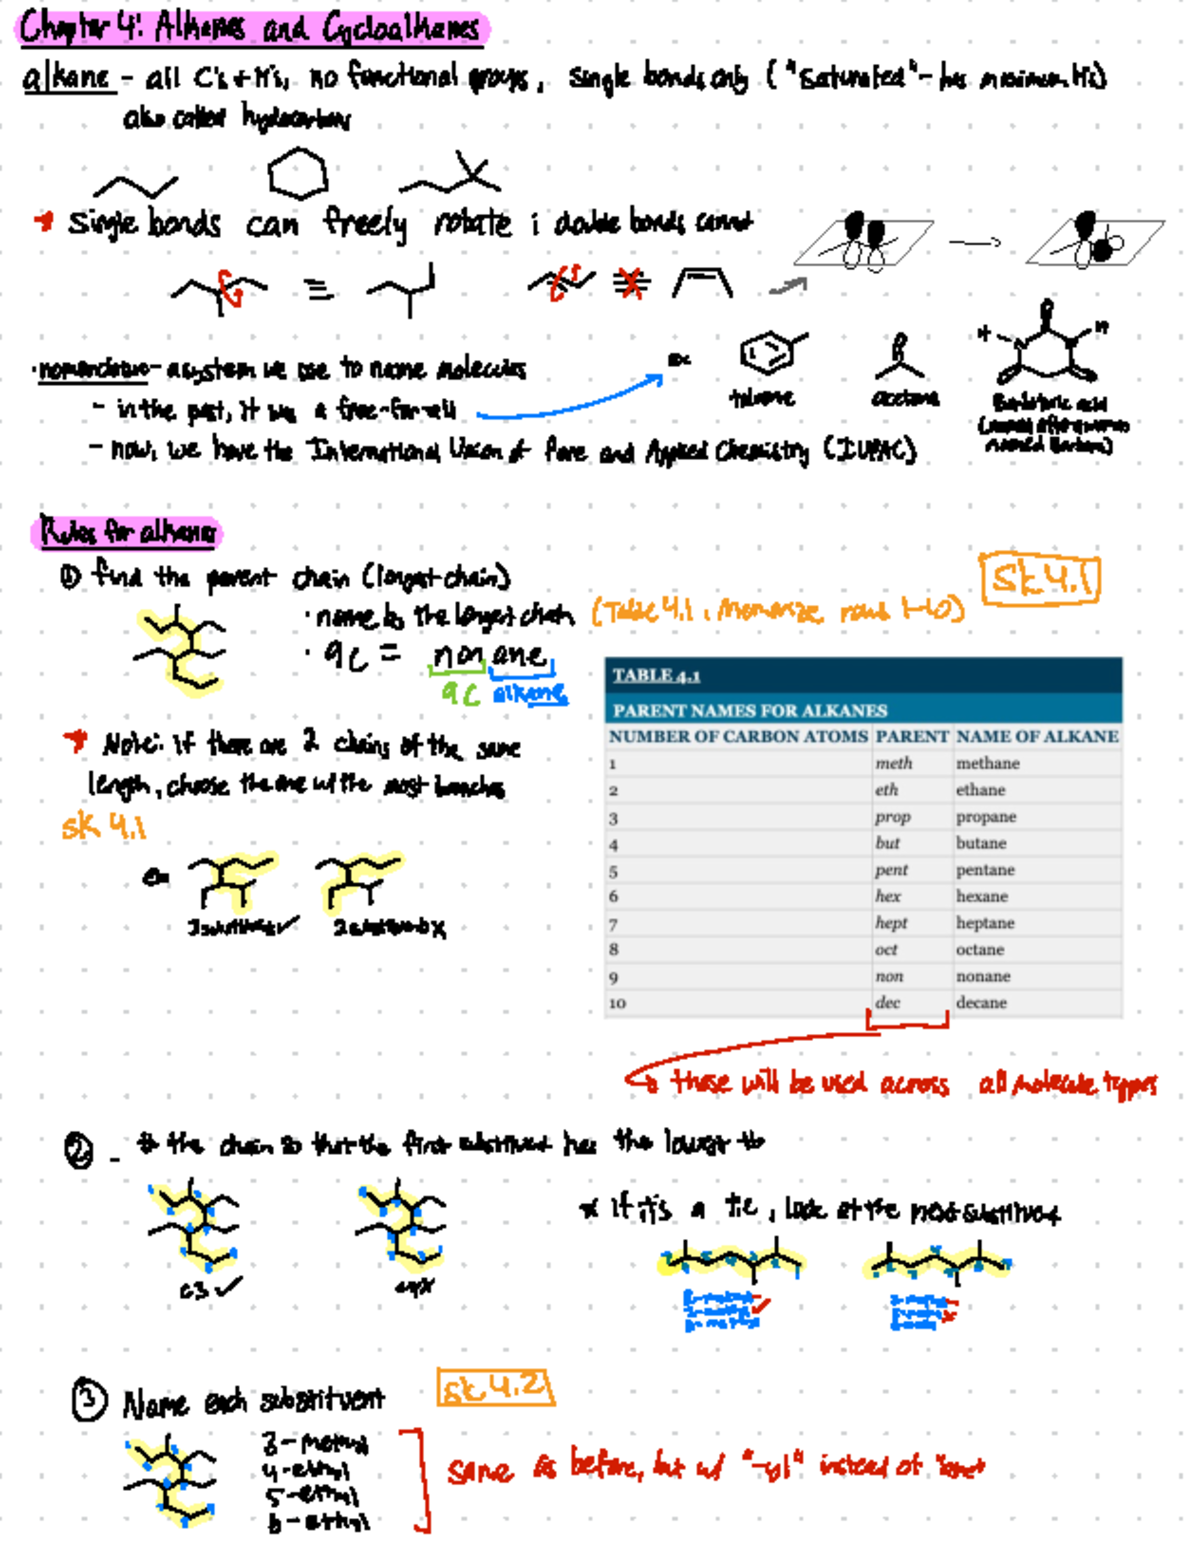 Chapter 4: Alkanes and Cycloalkanes
alkane - all C's + H's, no functional groups, single bonds only ("saturated" - has maximum H's)
also called hydrocarbons
Single bonds can freely rotate ; double bonds cannot
nomenclature - a system we use to name molecules
- in the past, it was a free-for-all
ex:
toluene
acetone
Barbituric acid
(named after a woman
named Barbara)
- now, we have the International Union of Pure and Applied Chemistry (IUPAC)
Rules for alkanes
① find the parent chain (longest chain)
SK 4.1
· name by the longest chain (Table 4.1, Memorize rows 1-10)
· 9C = nonane
9C alkane
Note: if there are 2 chains of the same
length, choose the one w/ the most branches
SK 4.1
ex:
3 substituents ✓
2 substituents x
TABLE 4.1
PARENT NAMES FOR ALKANES
NUMBER OF CARBON ATOMS PARENT NAME OF ALKANE
1 meth methane
2 eth ethane
3 prop propane
4 but butane
5 pent pentane
6 hex hexane
7 hept heptane
8 oct octane
9 non nonane
10 dec decane
these will be used across all molecule types
② - # the chain so that the first substituent has the lowest #
* if it's a tie, look at the next substituent
C3 ✓
③ Name each substituent
SK 4.2
3-methyl
4-ethyl
5-ethyl
6-ethyl
same as before, but w/ "-yl" instead of "ane"